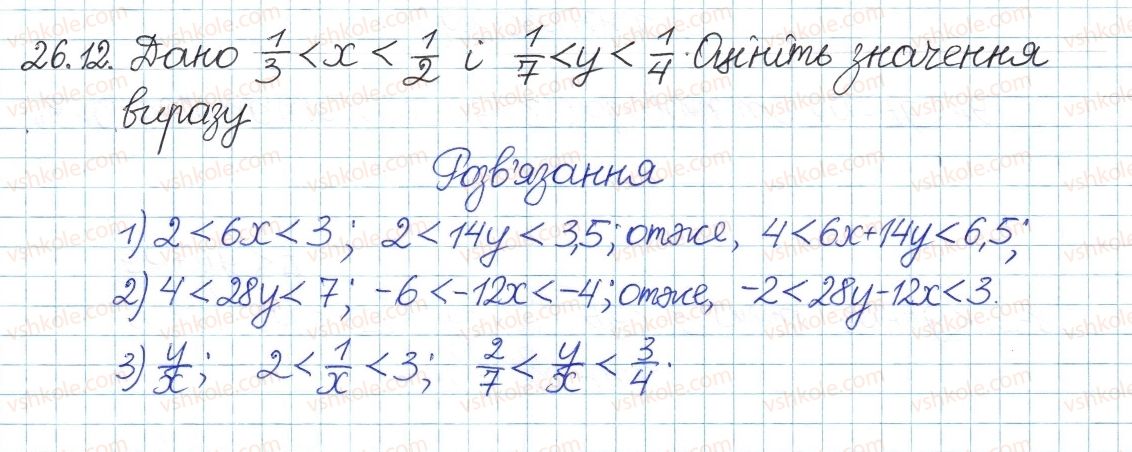 26.12. Дано 1/3 < x < 1/2 і 1/7 < y < 1/4. Оцініть значення
виразу
Розв'язання
1) 2 < 6x < 3; 2 < 14y < 3,5; отже, 4 < 6x+14y < 6,5;
2) 4 < 28y < 7; -6 < -12x < -4; отже, -2 < 28y-12x < 3.
3) y/x; 2 < 1/x < 3; 2/7 < y/x < 3/4.